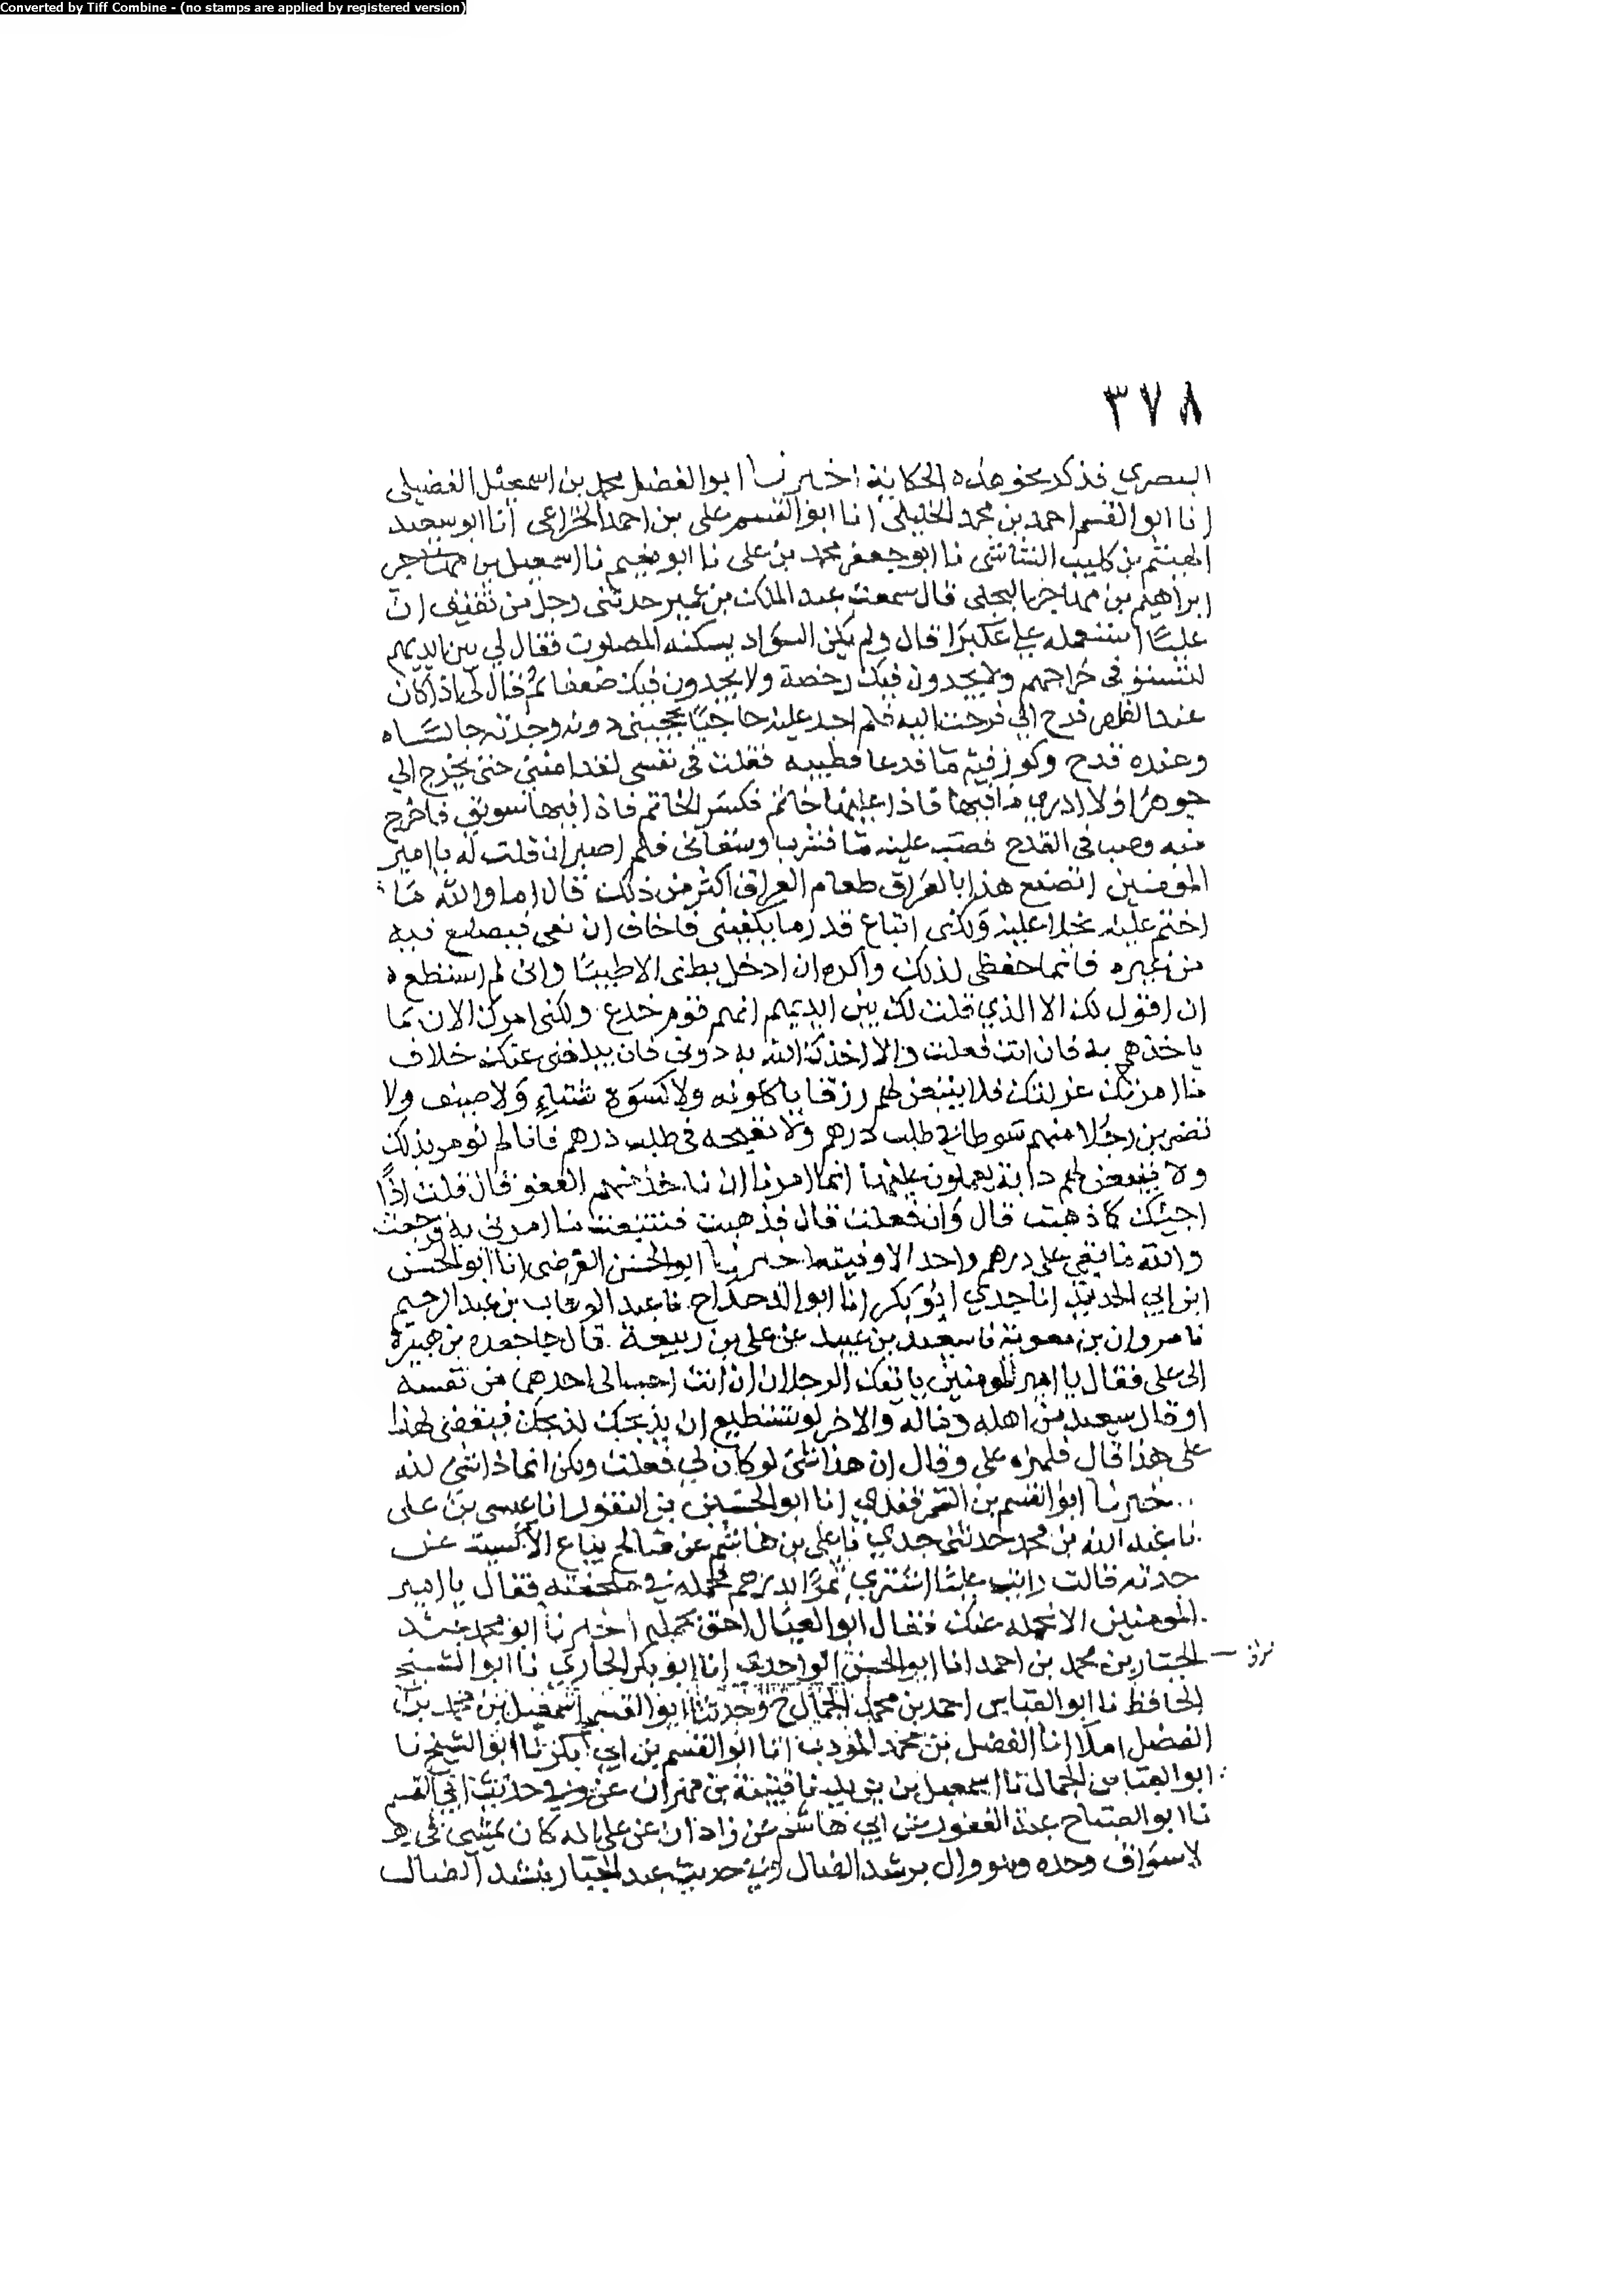 Converted by Tiff Combine - (no stamps are applied by registered version)
٣٧٨
البصري فذكر نحو هذه الحكاية اخبرنا ابو الفضل محمد بن اسمعيل الفضيلي
انا ابو القسم احمد بن محمد الخليلي انا ابو القسم علي بن احمد الخزاعي انا ابو سعيد
الهيثم بن كليب الشاشي نا ابو جعفر محمد بن علي نا ابو نعيم نا اسمعيل بن
ابراهيم بن مهاجر البجلي قال سمعت عبد الملك بن عمير حدثني رجل من ثقيف ان
عليا استعمله على عكبرا قال ولم يكن السواد يسكنه المصلون فقال لي بين ايديهم
لتستوفي خراجهم ولا يجدون فيك رخصة ولا يجدون فيك ضعفا ثم قال لي اذا كان
عند الظهر فرح الي فرحت اليه فلم اجد عليه حاجبا يحجبني دونه وجدته جالسا
وعنده قدح وكوز فيه ما فدعا فطيبه فقلت في نفسي لقد امنني حتى يخرج الي
جوهرا ولا ادري ما فيها فاذا عليها خاتم فكسر الخاتم فاذا فيها سويق فاخرج
منه وصب في القدح فصب عليه ما فشرب وسقاني فلم اصبر ان قلت له يا امير
المومنين اتصنع هذا بالعراق طعام العراق اكثر من ذلك قال اما والله ما
اختم عليه بخلا عليه ولكني ابتاع قدر ما يكفيني فاخاف ان نمى فيصنع فيه
من غيره فانما حفظي لذلك واكره ان ادخل بطني الا طيبا واني لم استطع
ان اقول لك الا الذي قلت لك بين ايديهم انهم قوم خدع ولكني امرك الان بما
ياخذهم به فان انت فعلت والا اخذك الله به دوني فان يبلغني عنك خلاف
ما امرتك عزلتك فلا يبيعن لهم رزقا ياكلونه ولا كسوة شتاء ولا صيف ولا
تضربن رجلا منهم سوطا في طلب درهم ولا تقيمه في طلب درهم فانا لم نومر بذلك
ولا تبيعن لهم دابة يعملون عليها انما امرنا ان ناخذ منهم العفو قال قلت اذا
اجيئك كما ذهبت قال وان فعلت قال فذهبت فتتبعت ما امرني به فرجعت
والله ما بقي علي درهم واحد الا وفيته اخبرنا ابو الحسن الفرضي انا ابو الحسن
ابن ابي الحديد انا جدي ابو بكر انا ابو الدحداح نا عبد الوهاب بن عبد الرحيم
نا مروان بن معوية نا سعيد بن عبيد عن علي بن ربيعة قال جا جعدة بن هبيرة
الى علي فقال يا امير المومنين ياتيك الرجلان ان انت احب الى احدهما من نفسه
او قال سعيد من اهله وماله والاخر لو يستطيع ان يذبحك لذبحك فتقضي لهذا
على هذا قال فلهزه علي وقال ان هذا شي لو كان لي فعلت ولكن انما ذا شي لله
اخبرنا ابو القسم بن السمرقندي انا ابو الحسين بن النقور انا عيسى بن علي
نا عبد الله بن محمد حدثني جدي نا علي بن هاشم عن صالح بياع الاكسية عن
جدته قالت رايت عليا اشترى تمرا بدرهم فحمله في ملحفته فقال يا امير
المومنين الا نحمله عنك فقال ابو العيال احق بحمله اخبرنا ابو محمد عبد
الجبار بن محمد بن احمد انا ابو الحسن الواحدي انا ابو بكر الحارثي نا ابو الشيخ
الحافظ نا ابو العباس احمد بن محمد الجمال ح وحدثنا ابو القسم اسمعيل بن محمد بن
الفضل املا انا الفضل بن محمد المودب انا ابو القسم بن ابي بكر نا ابو الشيخ نا
ابو العباس الجمال نا اسمعيل بن يزيد نا قتيبة بن مهران عن وفي حديث ابي القسم
نا ابو الصباح عبد الغفور عن ابي هاشم عن زاذان عن علي انه كان يمشي في
الاسواق وحده وهو وال يرشد الضال وفي حديث عبد الجبار ينشد الضال